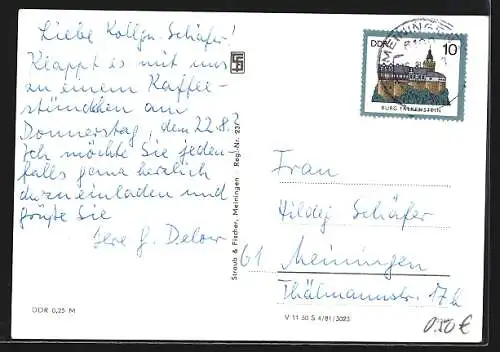 Liebe Kollgn. Schäfer!
Klappt es mit uns
zu einem Kaffee-
stündchen am
Donnerstag, dem 22.8.?
Ich möchte Sie jeden-
falls ganz herzlich
dazu einladen und
grüße Sie
Ihre G. Delow
DDR 0,25 M
Straub & Fischer, Meiningen
Reg.-Nr. 23
MEININGEN
DDR
10
BURG FALKENSTEIN
Frau
Hildeg. Schäfer
61 Meiningen
Thälmannstr. 17b
V 11 50 S 4/81/3023
0.50 €